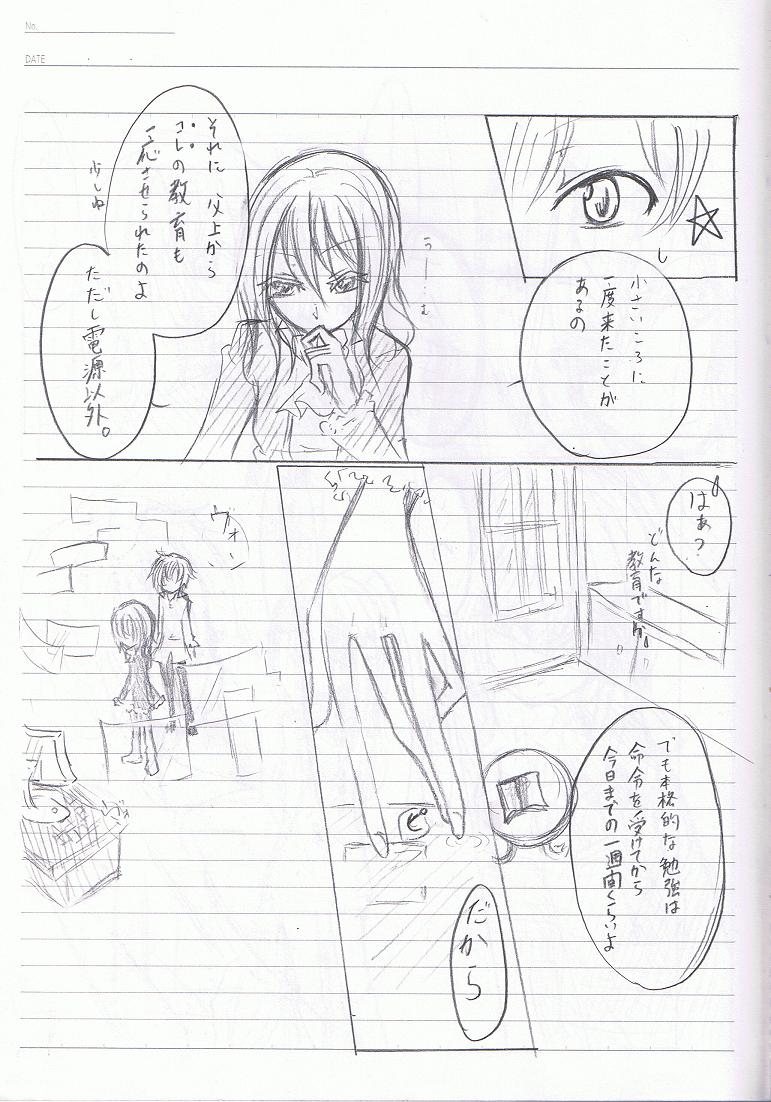 No.
DATE
小さいころに
一度来たことが
あるの
うー…む
それに 父上から
コレの教育も
一応させられたのよ
少しね
ただし電源以外。
はぁ?
どんな
教育ですか。
でも本格的な勉強は
命令を受けてから
今日までの一週間くらいよ
ピ
だから
ウォン